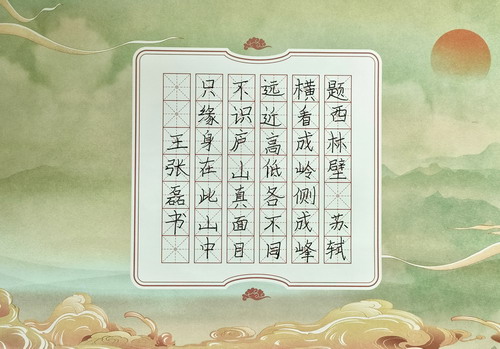 题西林壁 苏轼
横看成岭侧成峰
远近高低各不同
不识庐山真面目
只缘身在此山中
王张磊书